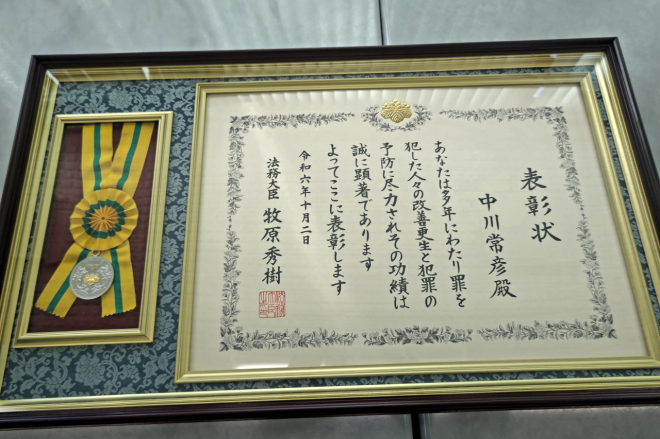 表彰状
中川常彦殿
あなたは多年にわたり罪を
犯した人々の改善更生と犯罪の
予防に尽力されその功績は
誠に顕著であります
よってここに表彰します
令和六年十月二日
法務大臣 牧原秀樹